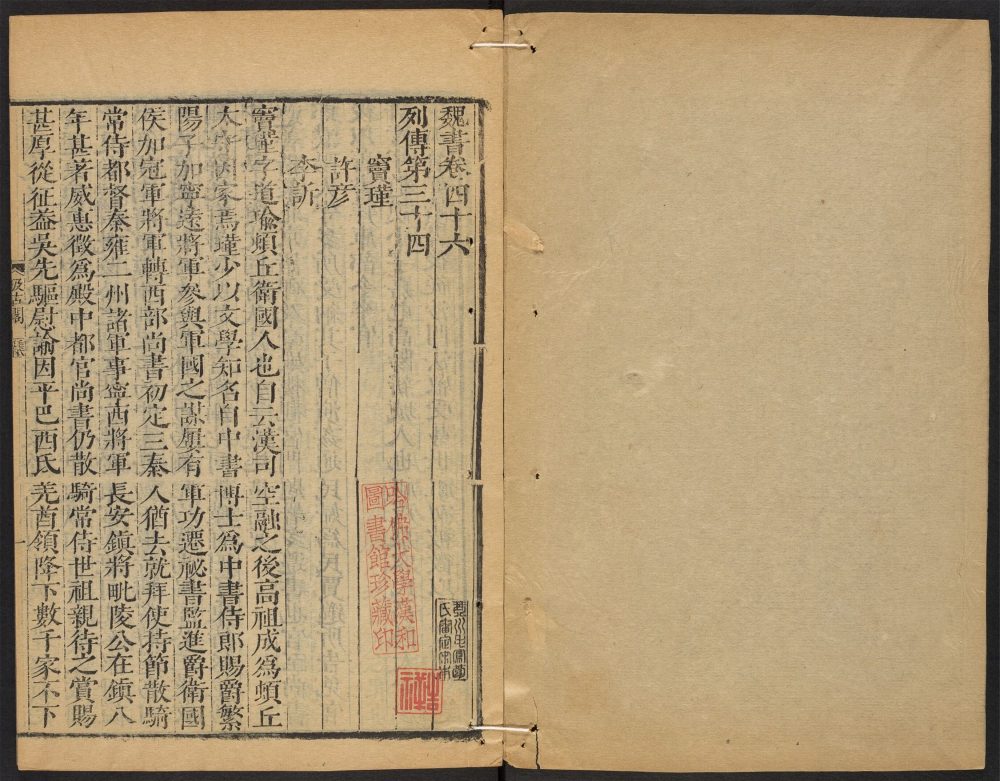 魏書卷四十六
列傳第三十四
竇瑾
許彥
李訢
竇瑾字道瑜頓丘衛國人也自云漢司空融之後高祖成爲頓丘
太守因家焉瑾少以文學知名自中書博士爲中書侍郎賜爵繁
陽子加寧遠將軍參與軍國之謀屢有軍功遷祕書監進爵衛國
侯加冠軍將軍轉西部尚書初定三秦人猶去就拜使持節散騎
常侍都督秦雍二州諸軍事寧西將軍長安鎮將毗陵公在鎮八
年甚著威惠徵爲殿中都官尚書仍散騎常侍世祖親待之賞賜
甚厚從征蓋吳先驅慰諭因平巴西氐羌酋領降下數千家不下
汲古閣
一
哈佛大學漢和
圖書館珍藏印